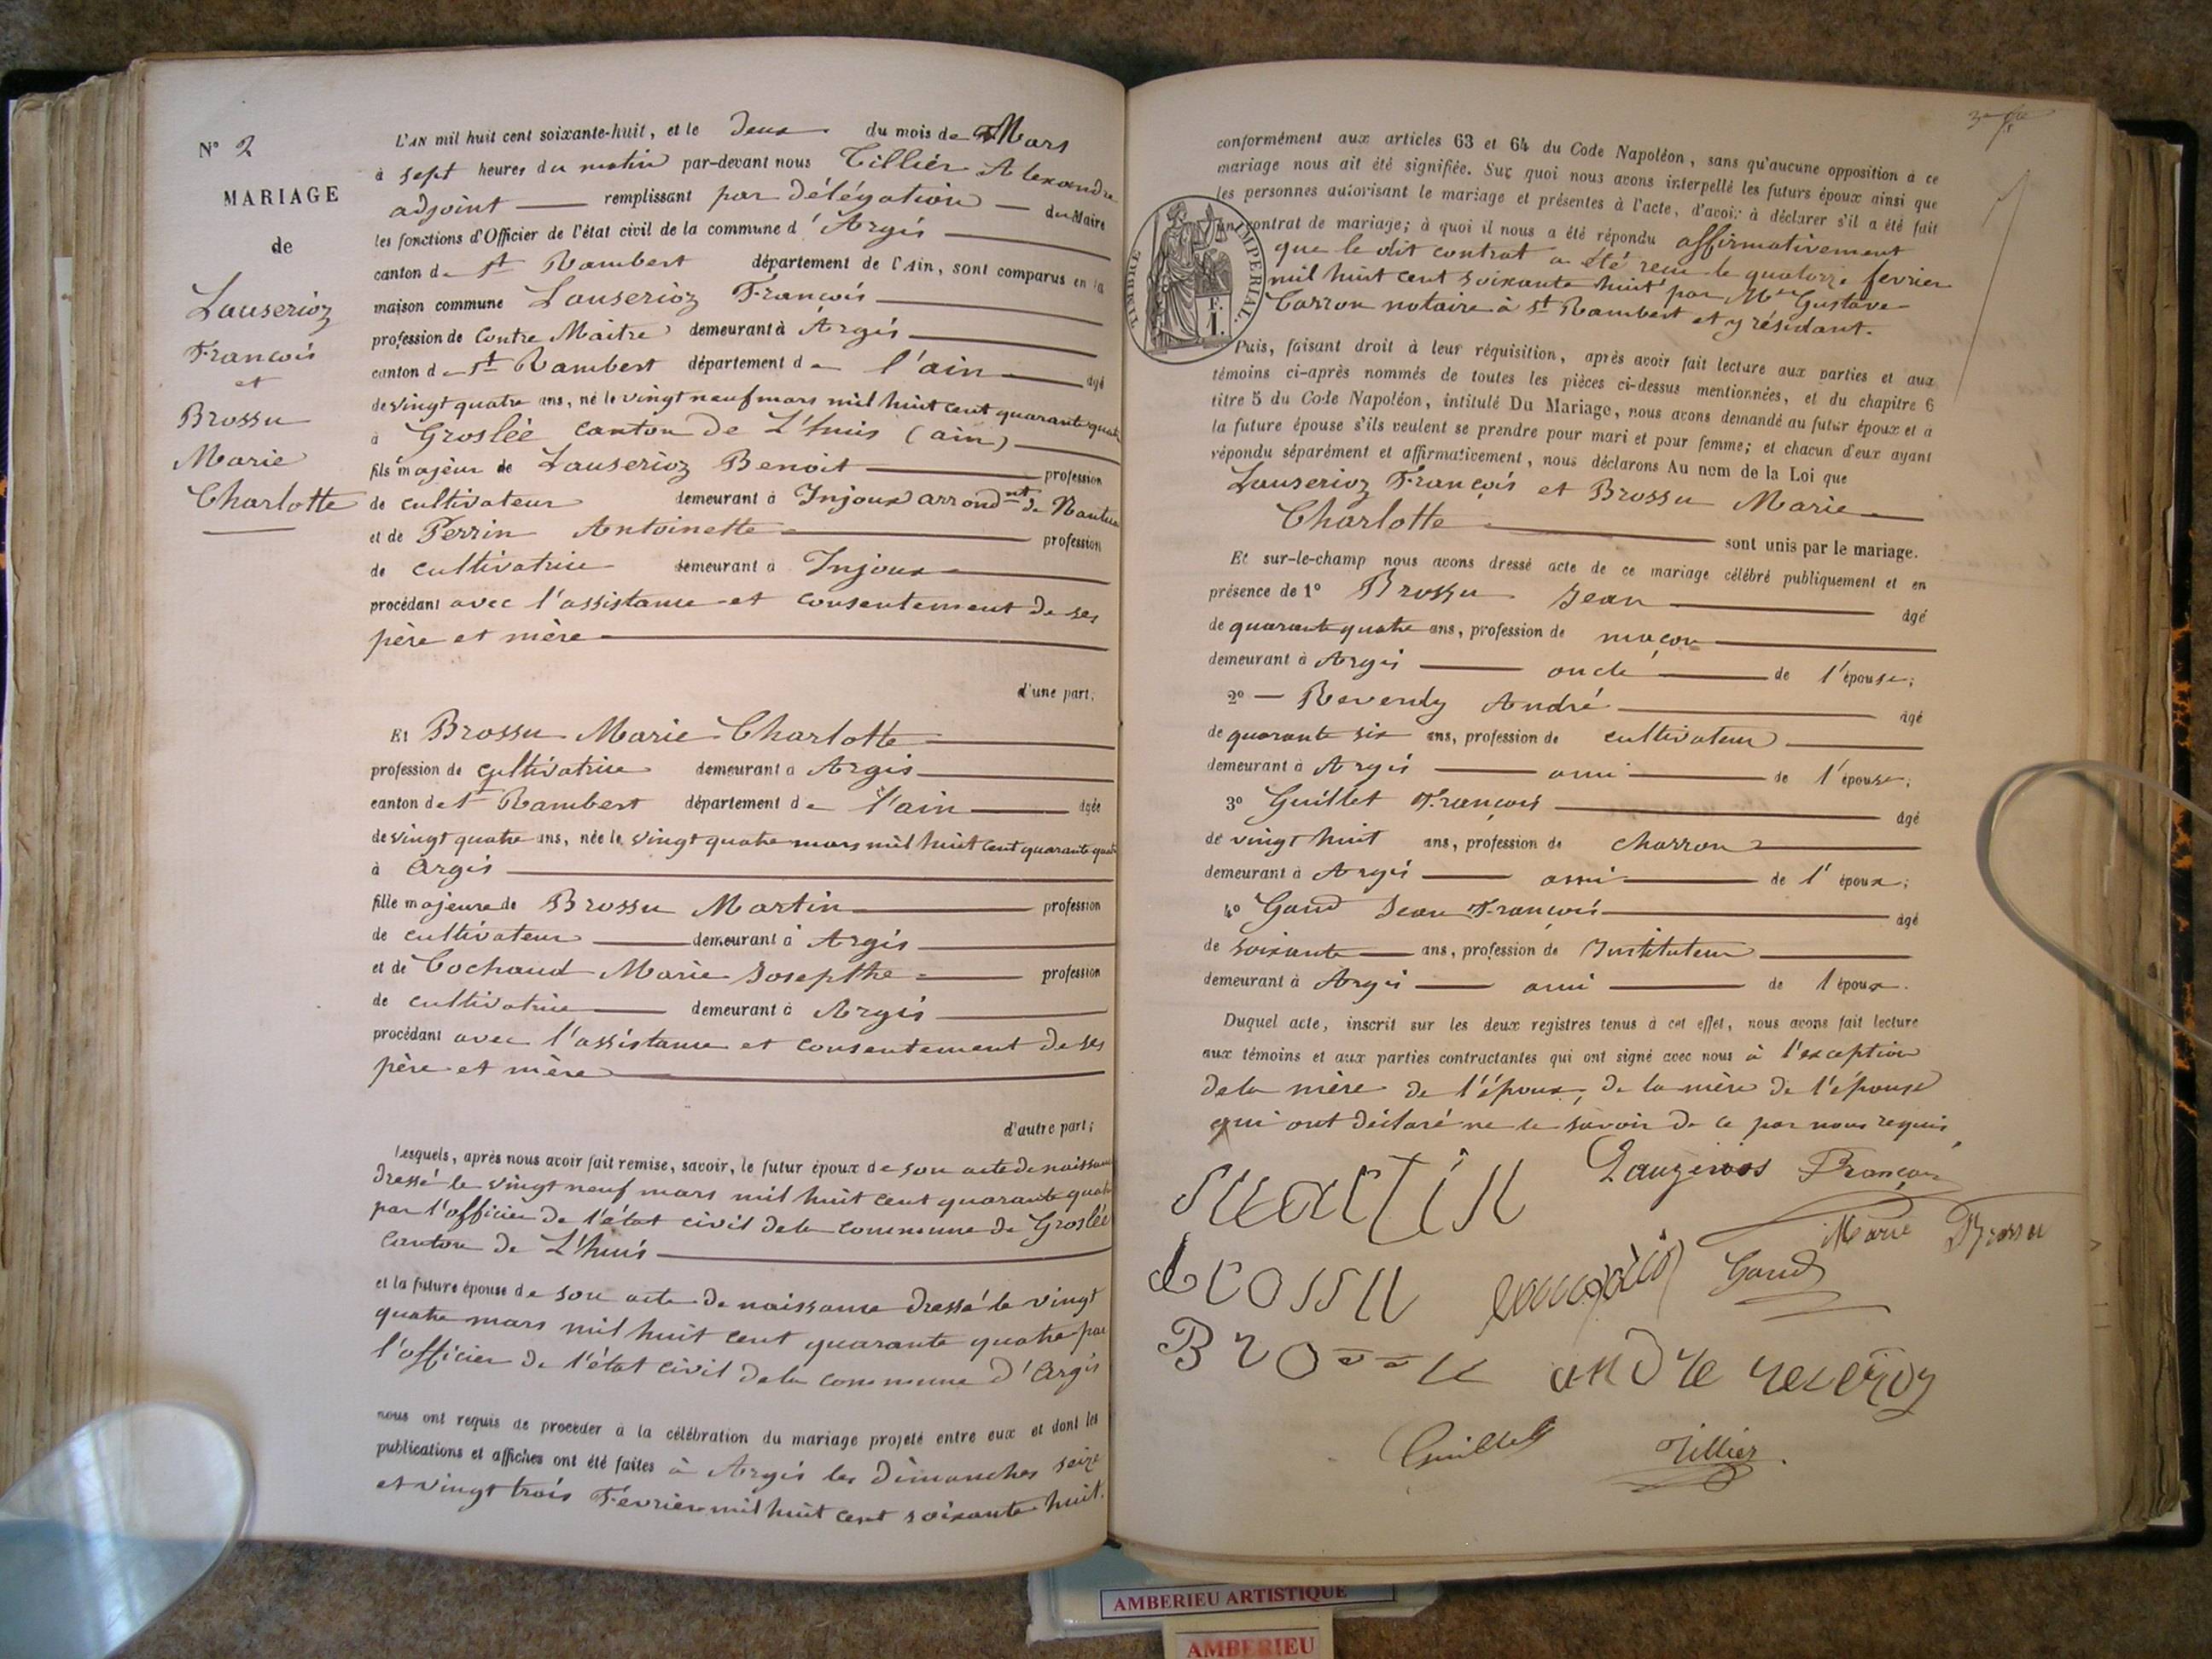 N° 2
MARIAGE
de
Lauserioz
François
et
Brossu
Marie
Charlotte
L'AN mil huit cent soixante-huit, et le deux du mois de Mars
à sept heures du matin par-devant nous Tillier Alexandre
adjoint remplissant par délégation du Maire
les fonctions d'Officier de l'état civil de la commune d'Argis
canton de St Rambert département de l'Ain, sont comparus en la
maison commune Lauserioz François
profession de Contre Maitre demeurant à Argis
canton de St Rambert département de l'ain âgé
de vingt quatre ans, né le vingt neuf mars mil huit cent quarante quatre
à Groslée canton de L'huis (ain)
fils majeur de Lauserioz Benoit profession
de cultivateur demeurant à Injoux arrondnt de Nantua
et de Perrin Antoinette profession
de cultivatrice demeurant à Injoux
procédant avec l'assistance et consentement de ses
père et mère
d'une part;
Et Brossu Marie Charlotte
profession de cultivatrice demeurant à Argis
canton de St Rambert département de l'ain âgée
de vingt quatre ans, née le vingt quatre mars mil huit cent quarante quatre
à Argis
fille majeure de Brossu Martin profession
de cultivateur demeurant à Argis
et de Cochaud Marie Josepthe profession
de cultivatrice demeurant à Argis
procédant avec l'assistance et consentement de ses
père et mère
d'autre part;
Lesquels, après nous avoir fait remise, savoir, le futur époux de son acte de naissance
dressé le vingt neuf mars mil huit cent quarante quatre
par l'officier de l'état civil de la commune de Groslée
canton de L'huis
et la future épouse de son acte de naissance dressé le vingt
quatre mars mil huit cent quarante quatre par
l'officier de l'état civil de la commune d'Argis
nous ont requis de procéder à la célébration du mariage projeté entre eux et dont les
publications et affiches ont été faites à Argis les dimanches seize
et vingt trois Février mil huit cent soixante huit.
conformément aux articles 63 et 64 du Code Napoléon, sans qu'aucune opposition à ce
mariage nous ait été signifiée. Sur quoi nous avons interpellé les futurs époux ainsi que
les personnes autorisant le mariage et présentes à l'acte, d'avoir à déclarer s'il a été fait
un contrat de mariage; à quoi il nous a été répondu affirmativement
que le dit contrat a été reçu le quatorze fevrier
mil huit cent soixante huit par Me Gustave
Carron notaire à St Rambert et y résidant.
TIMBRE IMPÉRIAL
F.
1.
Puis, faisant droit à leur réquisition, après avoir fait lecture aux parties et aux
témoins ci-après nommés de toutes les pièces ci-dessus mentionnées, et du chapitre 6
titre 5 du Code Napoléon, intitulé Du Mariage, nous avons demandé au futur époux et à
la future épouse s'ils veulent se prendre pour mari et pour femme; et chacun d'eux ayant
répondu séparément et affirmativement, nous déclarons Au nom de la Loi que
Lauserioz François et Brossu Marie
Charlotte sont unis par le mariage.
Et sur-le-champ nous avons dressé acte de ce mariage célébré publiquement et en
présence de 1° Brossu Jean âgé
de quarante quatre ans, profession de maçon
demeurant à Argis oncle de l'épouse;
2° Reverdy André âgé
de quarante six ans, profession de cultivateur
demeurant à Argis ami de l'épouse;
3° Guillet François âgé
de vingt huit ans, profession de charron
demeurant à Argis ami de l'époux;
4° Gand Jean François âgé
de soixante ans, profession de Instituteur
demeurant à Argis ami de l'époux.
Duquel acte, inscrit sur les deux registres tenus à cet effet, nous avons fait lecture
aux témoins et aux parties contractantes qui ont signé avec nous à l'exception
de la mère de l'époux, de la mère de l'épouse
qui ont déclaré ne le savoir de ce par nous requis
martin Lauzerios François
Marie Brossu
brossu Gand
Brossu andre reverdy
Guillet Tillier
AMBERIEU ARTISTIQUE
AMBERIEU